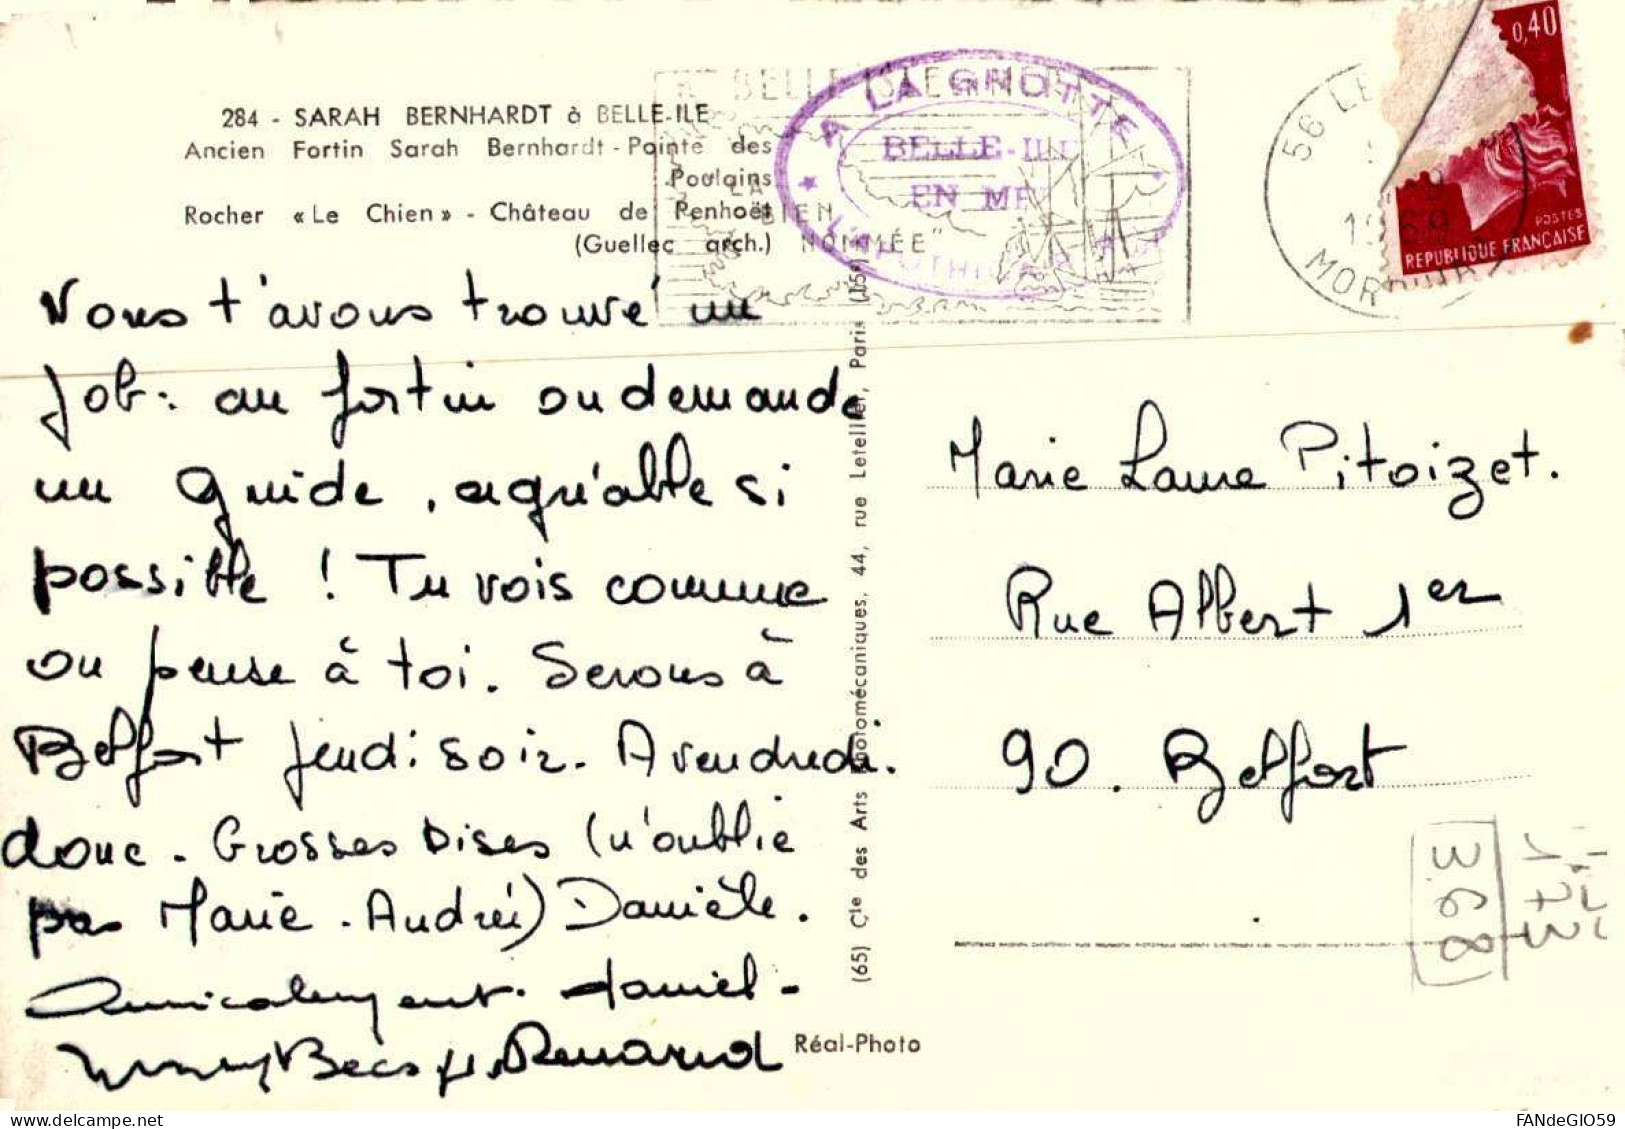 284 - SARAH BERNHARDT à BELLE-ILE
Ancien Fortin Sarah Bernhardt - Pointe des
Poulains
Rocher « Le Chien » - Château de Penhoët
(Guellec arch.)
BELLE ISLE EN MER
LA BIEN
NOMMÉE"
A LA GROTTE
BELLE-ILE
EN MER
56 LE
1969
MORBIHAN
0,40
POSTES
REPUBLIQUE FRANÇAISE
Nous t'avons trouvé un
job : au fortin on demande
un guide, agréable si
possible ! Tu vois comme
on pense à toi. Serons à
Belfort jeudi soir. A vendredi
donc. Grosses bises (n'oublie
pas Marie-Andrée) Danièle.
Amicalement. daniel -
Renard
Marie Laure Pitoizet.
Rue Albert 1er
90. Belfort
(65) Cie des Arts Photomécaniques, 44, rue Letellier, Paris (15e)
Réal-Photo
173
368
FANdeGIO59